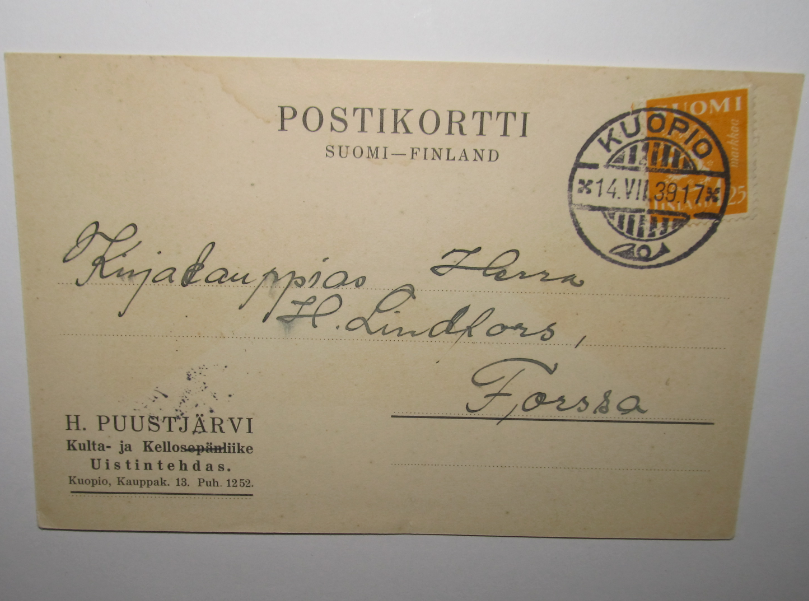 POSTIKORTTI
SUOMI—FINLAND
SUOMI
markkaa
25
KUOPIO
14.VII.39.17
Kirjakauppias Herra
H. Lindfors,
Forssa
H. PUUSTJÄRVI
Kulta- ja Kellosepänliike
Uistintehdas.
Kuopio, Kauppak. 13. Puh. 1252.